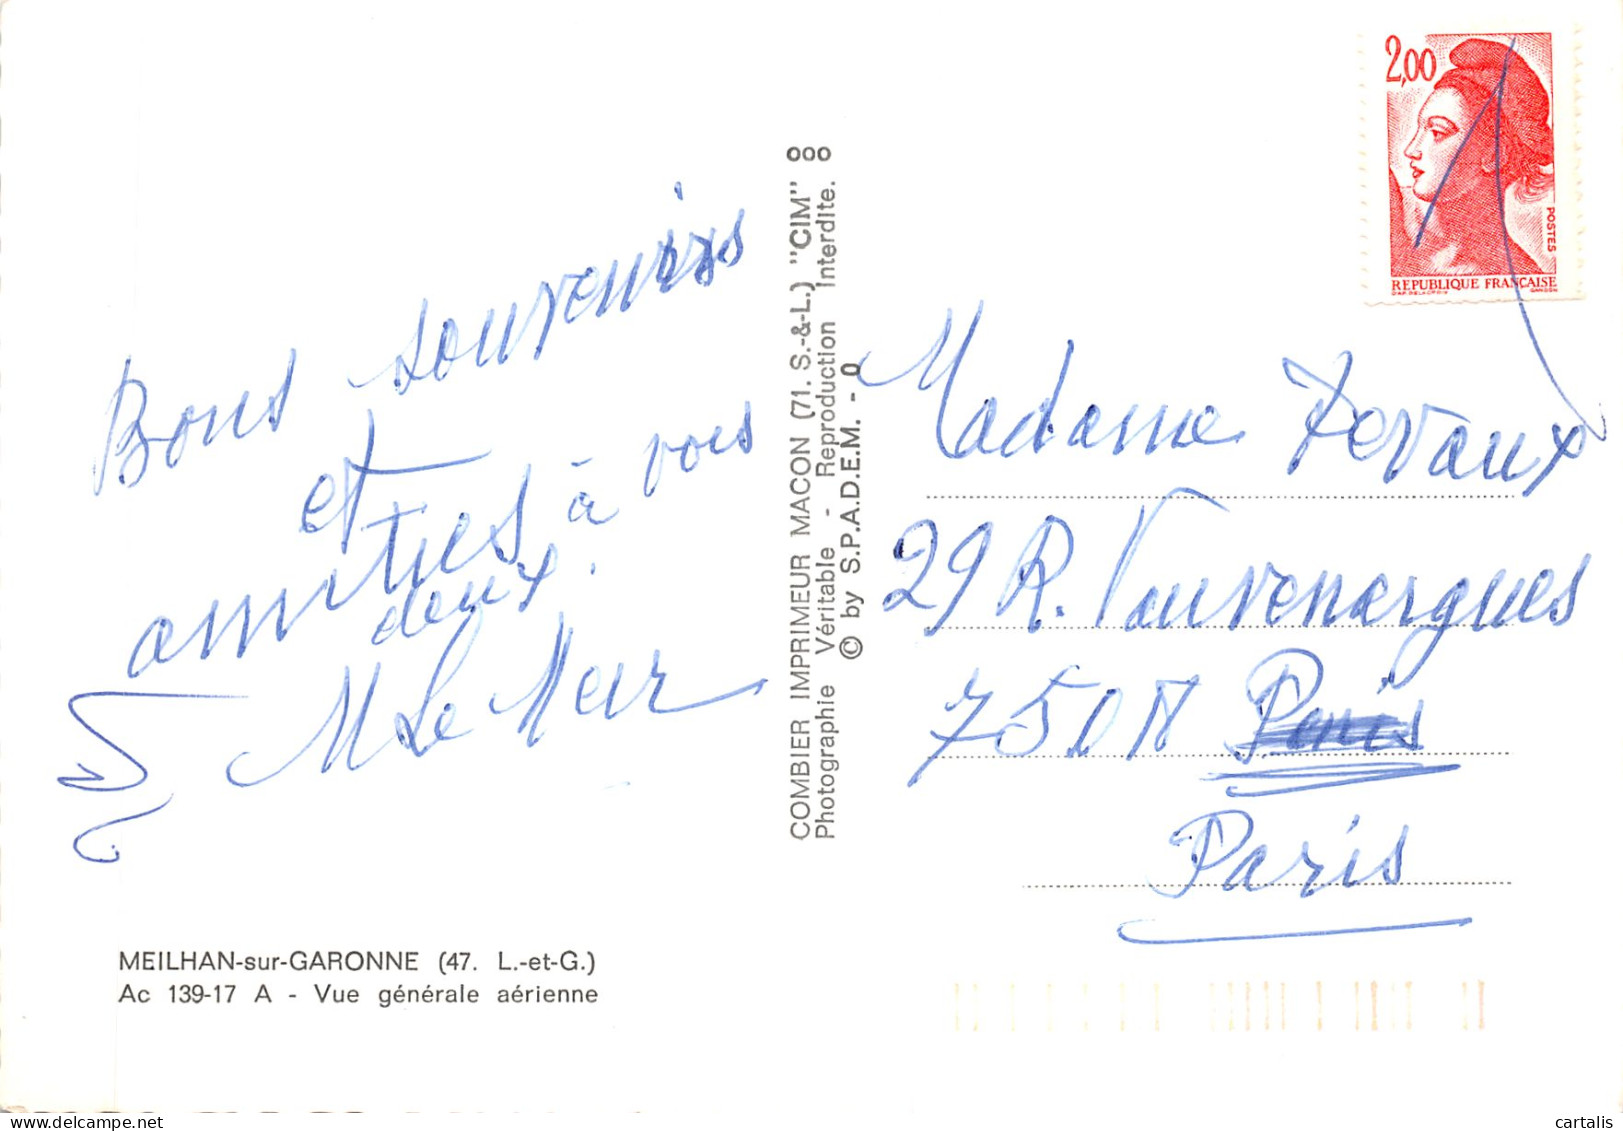 Bons souvenirs
et
amitiés à vous
deux.
M Le Meur
MEILHAN-sur-GARONNE (47. L.-et-G.)
Ac 139-17 A - Vue générale aérienne
COMBIER IMPRIMEUR MACON (71. S.-&-L.) "CIM"
Photographie Véritable - Reproduction Interdite.
© by S.P.A.D.E.M. - 0
2,00
POSTES
REPUBLIQUE FRANÇAISE
D'AP. DELACROIX GANDON
Madame Devaux
29 R. Vauvenargues
75018 Paris
Paris
cartalis